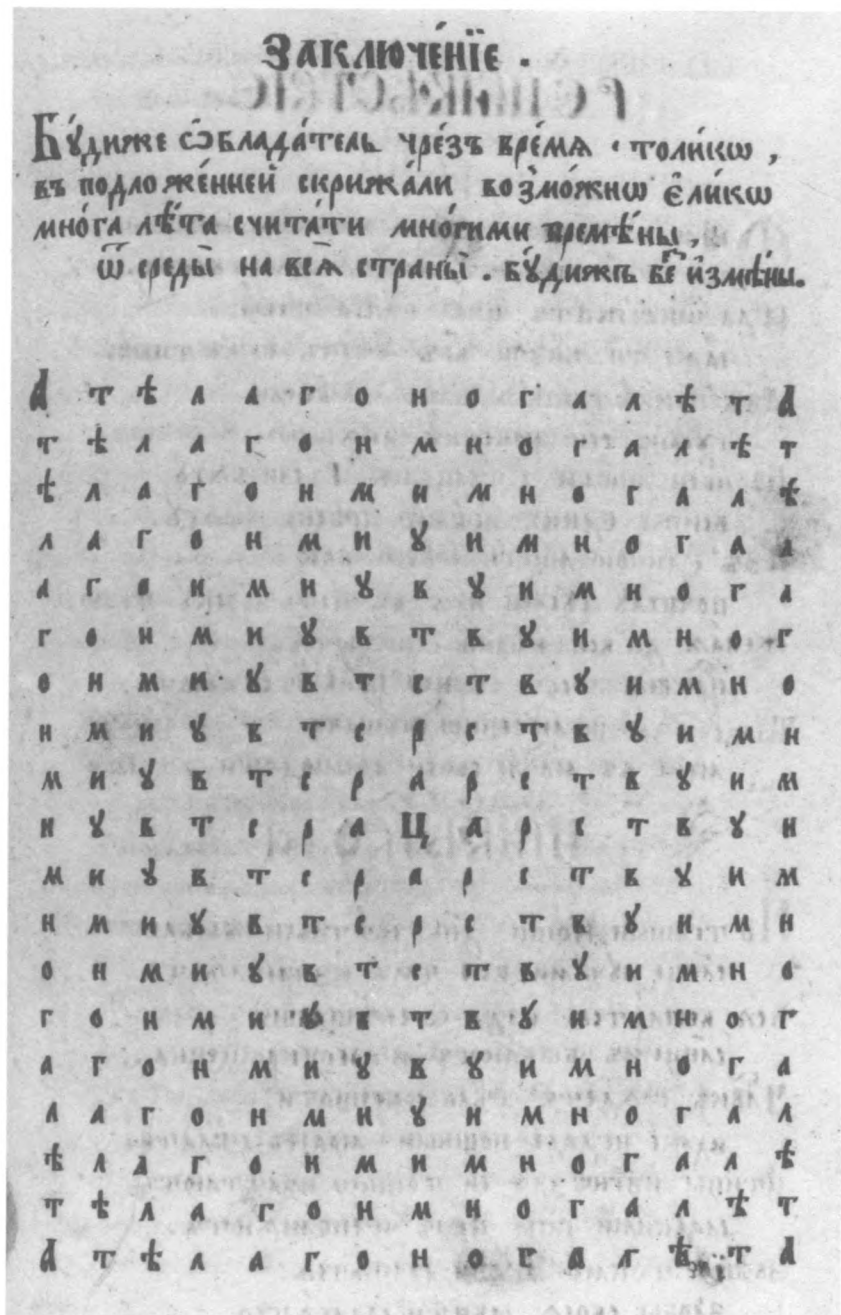 ЗАКЛЮЧЕ́НЇЕ .
Бꙋ́диже ѡ҆блада́тель чре́зъ вре́мѧ · толи́кѡ ,
въ подложе́нней скрижа́ли возмо́жнѡ є҆ли́кѡ
мно́га лѣ́та счита́ти мно́гими времѣ́ны ,
ѿ среды̀ на всѧ̑ страны̀ . бꙋ́дижъ беⷥ и҆змѣ́ны.
А т ѣ л а г о н о г а л ѣ т А
т ѣ л а г о н м н о г а л ѣ т
ѣ л а г о н м и м н о г а л ѣ
л а г о н м и ꙋ и м н о г а л
а г о н м и ꙋ в ꙋ и м н о г а
г о н м и ꙋ в т в ꙋ и м н о г
о н м и ꙋ в т е т в ꙋ и м н о
н м и ꙋ в т е р е т в ꙋ и м н
м и ꙋ в т е р а р е т в ꙋ и м
и ꙋ в т е р а Ц а р е т в ꙋ и
м и ꙋ в т е р а р е т в ꙋ и м
н м и ꙋ в т е р е т в ꙋ и м н
о н м и ꙋ в т е т в ꙋ и м н о
г о н м и ꙋ в т в ꙋ и м н о г
а г о н м и ꙋ в ꙋ и м н о г а
л а г о н м и ꙋ и м н о г а л
ѣ л а г о н м и м н о г а л ѣ
т ѣ л а г о н м н о г а л ѣ т
А т ѣ л а г о н о г а л ѣ т А